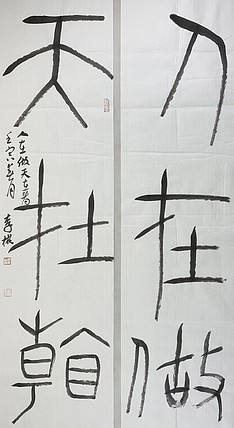 人在做
天在看
人在做天在看
壬寅
李